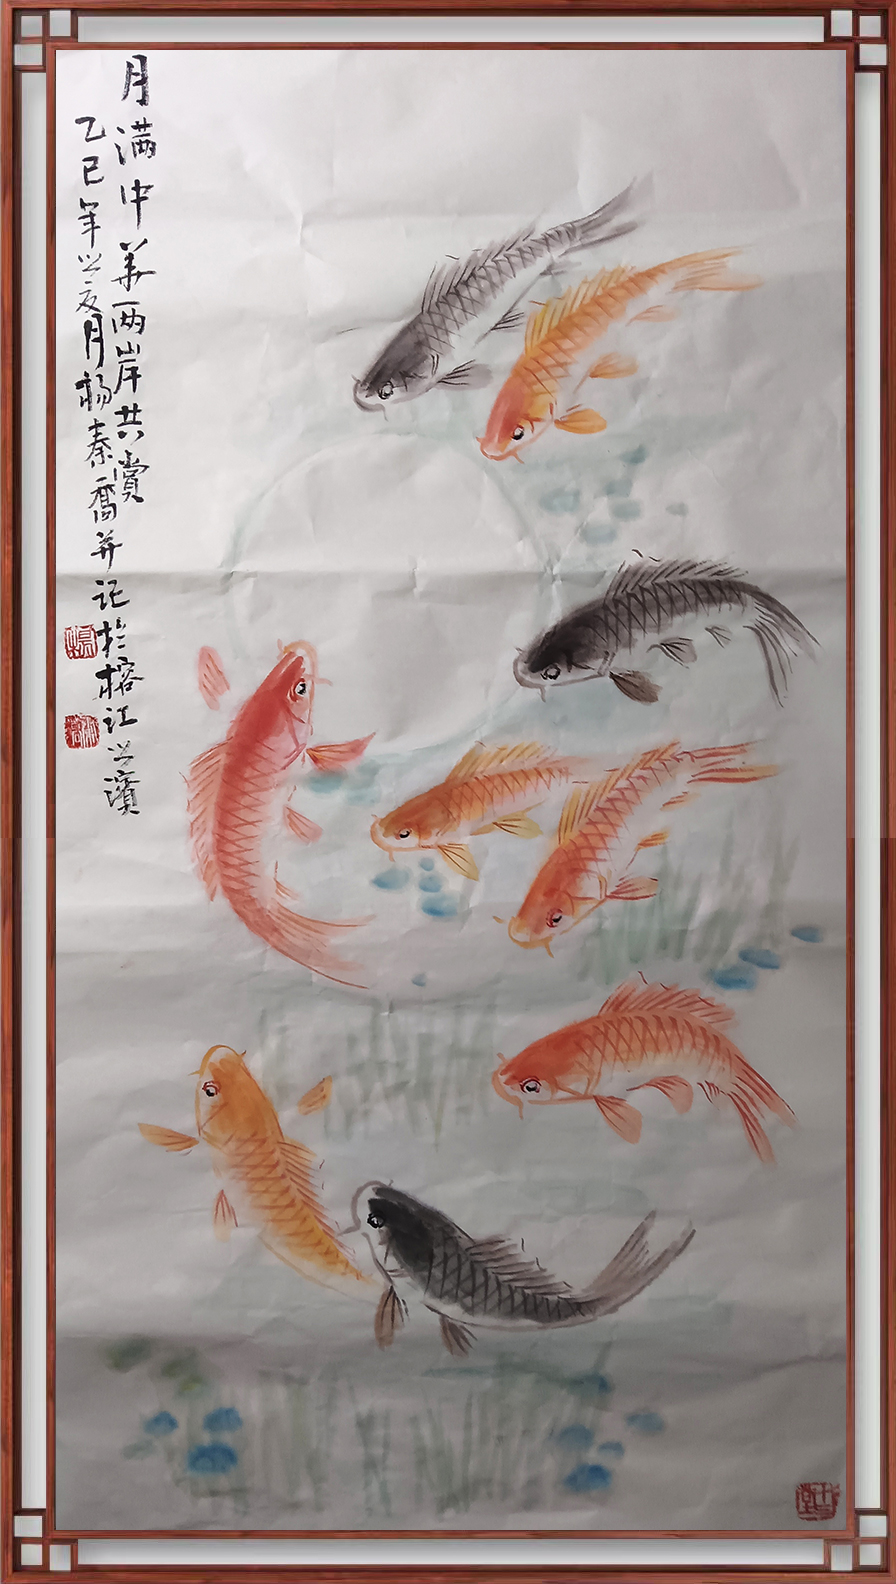 月满中华两岸共赏
乙巳年之亥月杨秦乔并记于榕江之滨